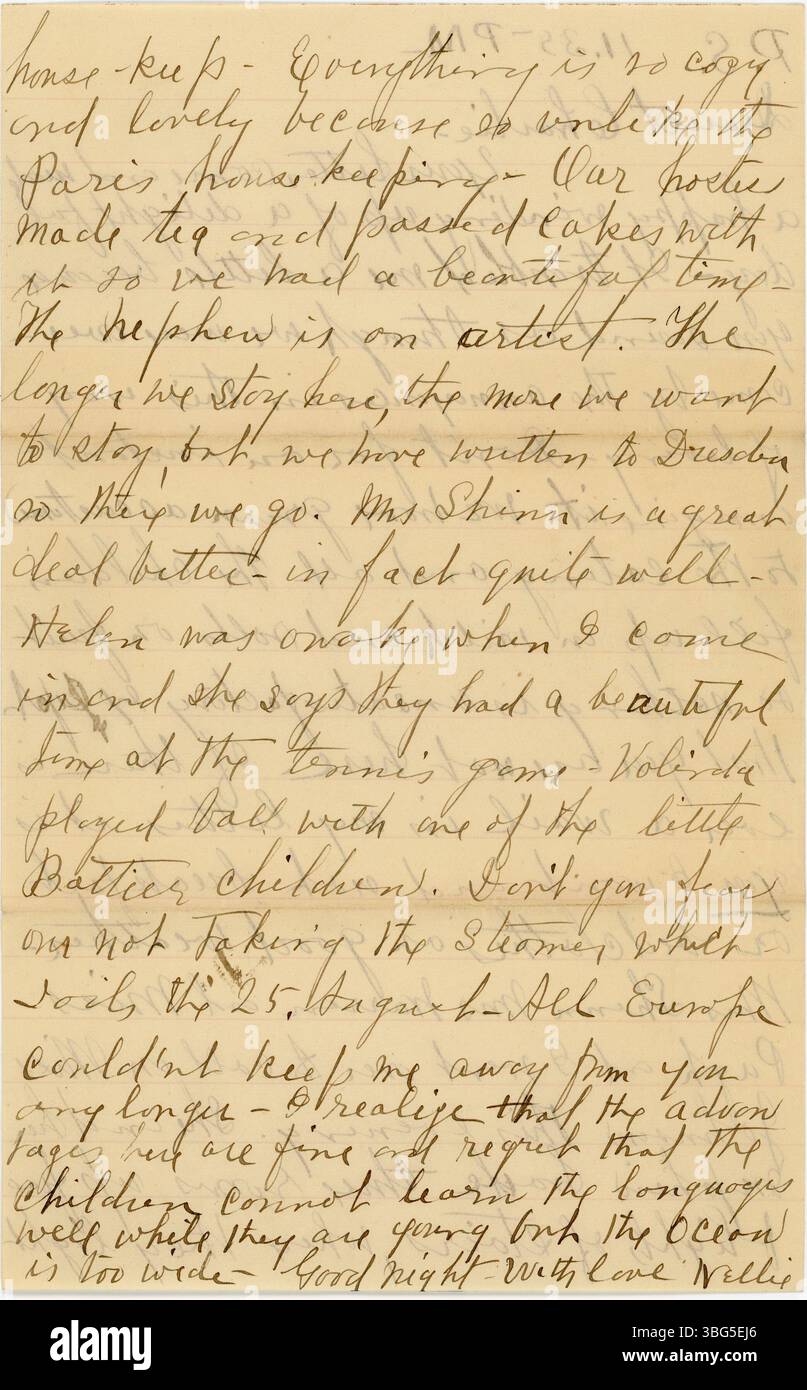 house-keep - Everything is so cozy
and lovely because so unlike the
Paris house keeping - Our hostess
made tea and passed cakes with
it so we had a beautiful time -
The nephew is an artist. The
longer we stay here, the more we want
to stay, but we have written to Dresden
so there we go. Mrs Shinn is a great
deal better - in fact quite well -
Helen was awake when I came
in and she says they had a beautiful
time at the tennis game - Volinda
played ball with one of the little
children. Don't you fear
our not taking the steamer which
sails the 25. August - All Europe
could'nt keep me away from you
any longer - I realize that the advan
tages here are fine and regret that the
children cannot learn the languages
well while they are young but the Ocean
is too wide - Good night - With love Nellie
P.S. 11.35 - P.M.
alamy
alamy
Image ID: 3BG5EJ6
www.alamy.com